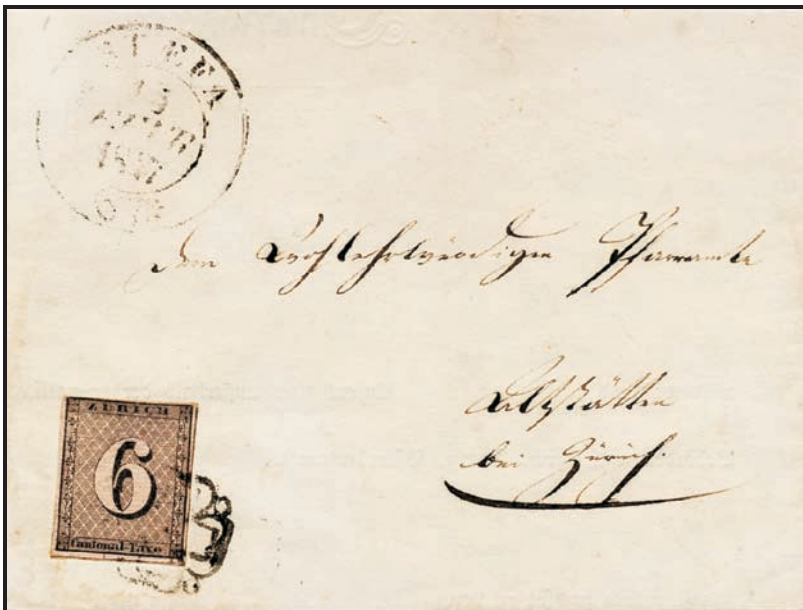 STÆFA
15
1847
Dem Wohlehrwürdigen Pfarramte
Altstätten
bei Zürich.
ZÜRICH
6
Cantonal-Taxe